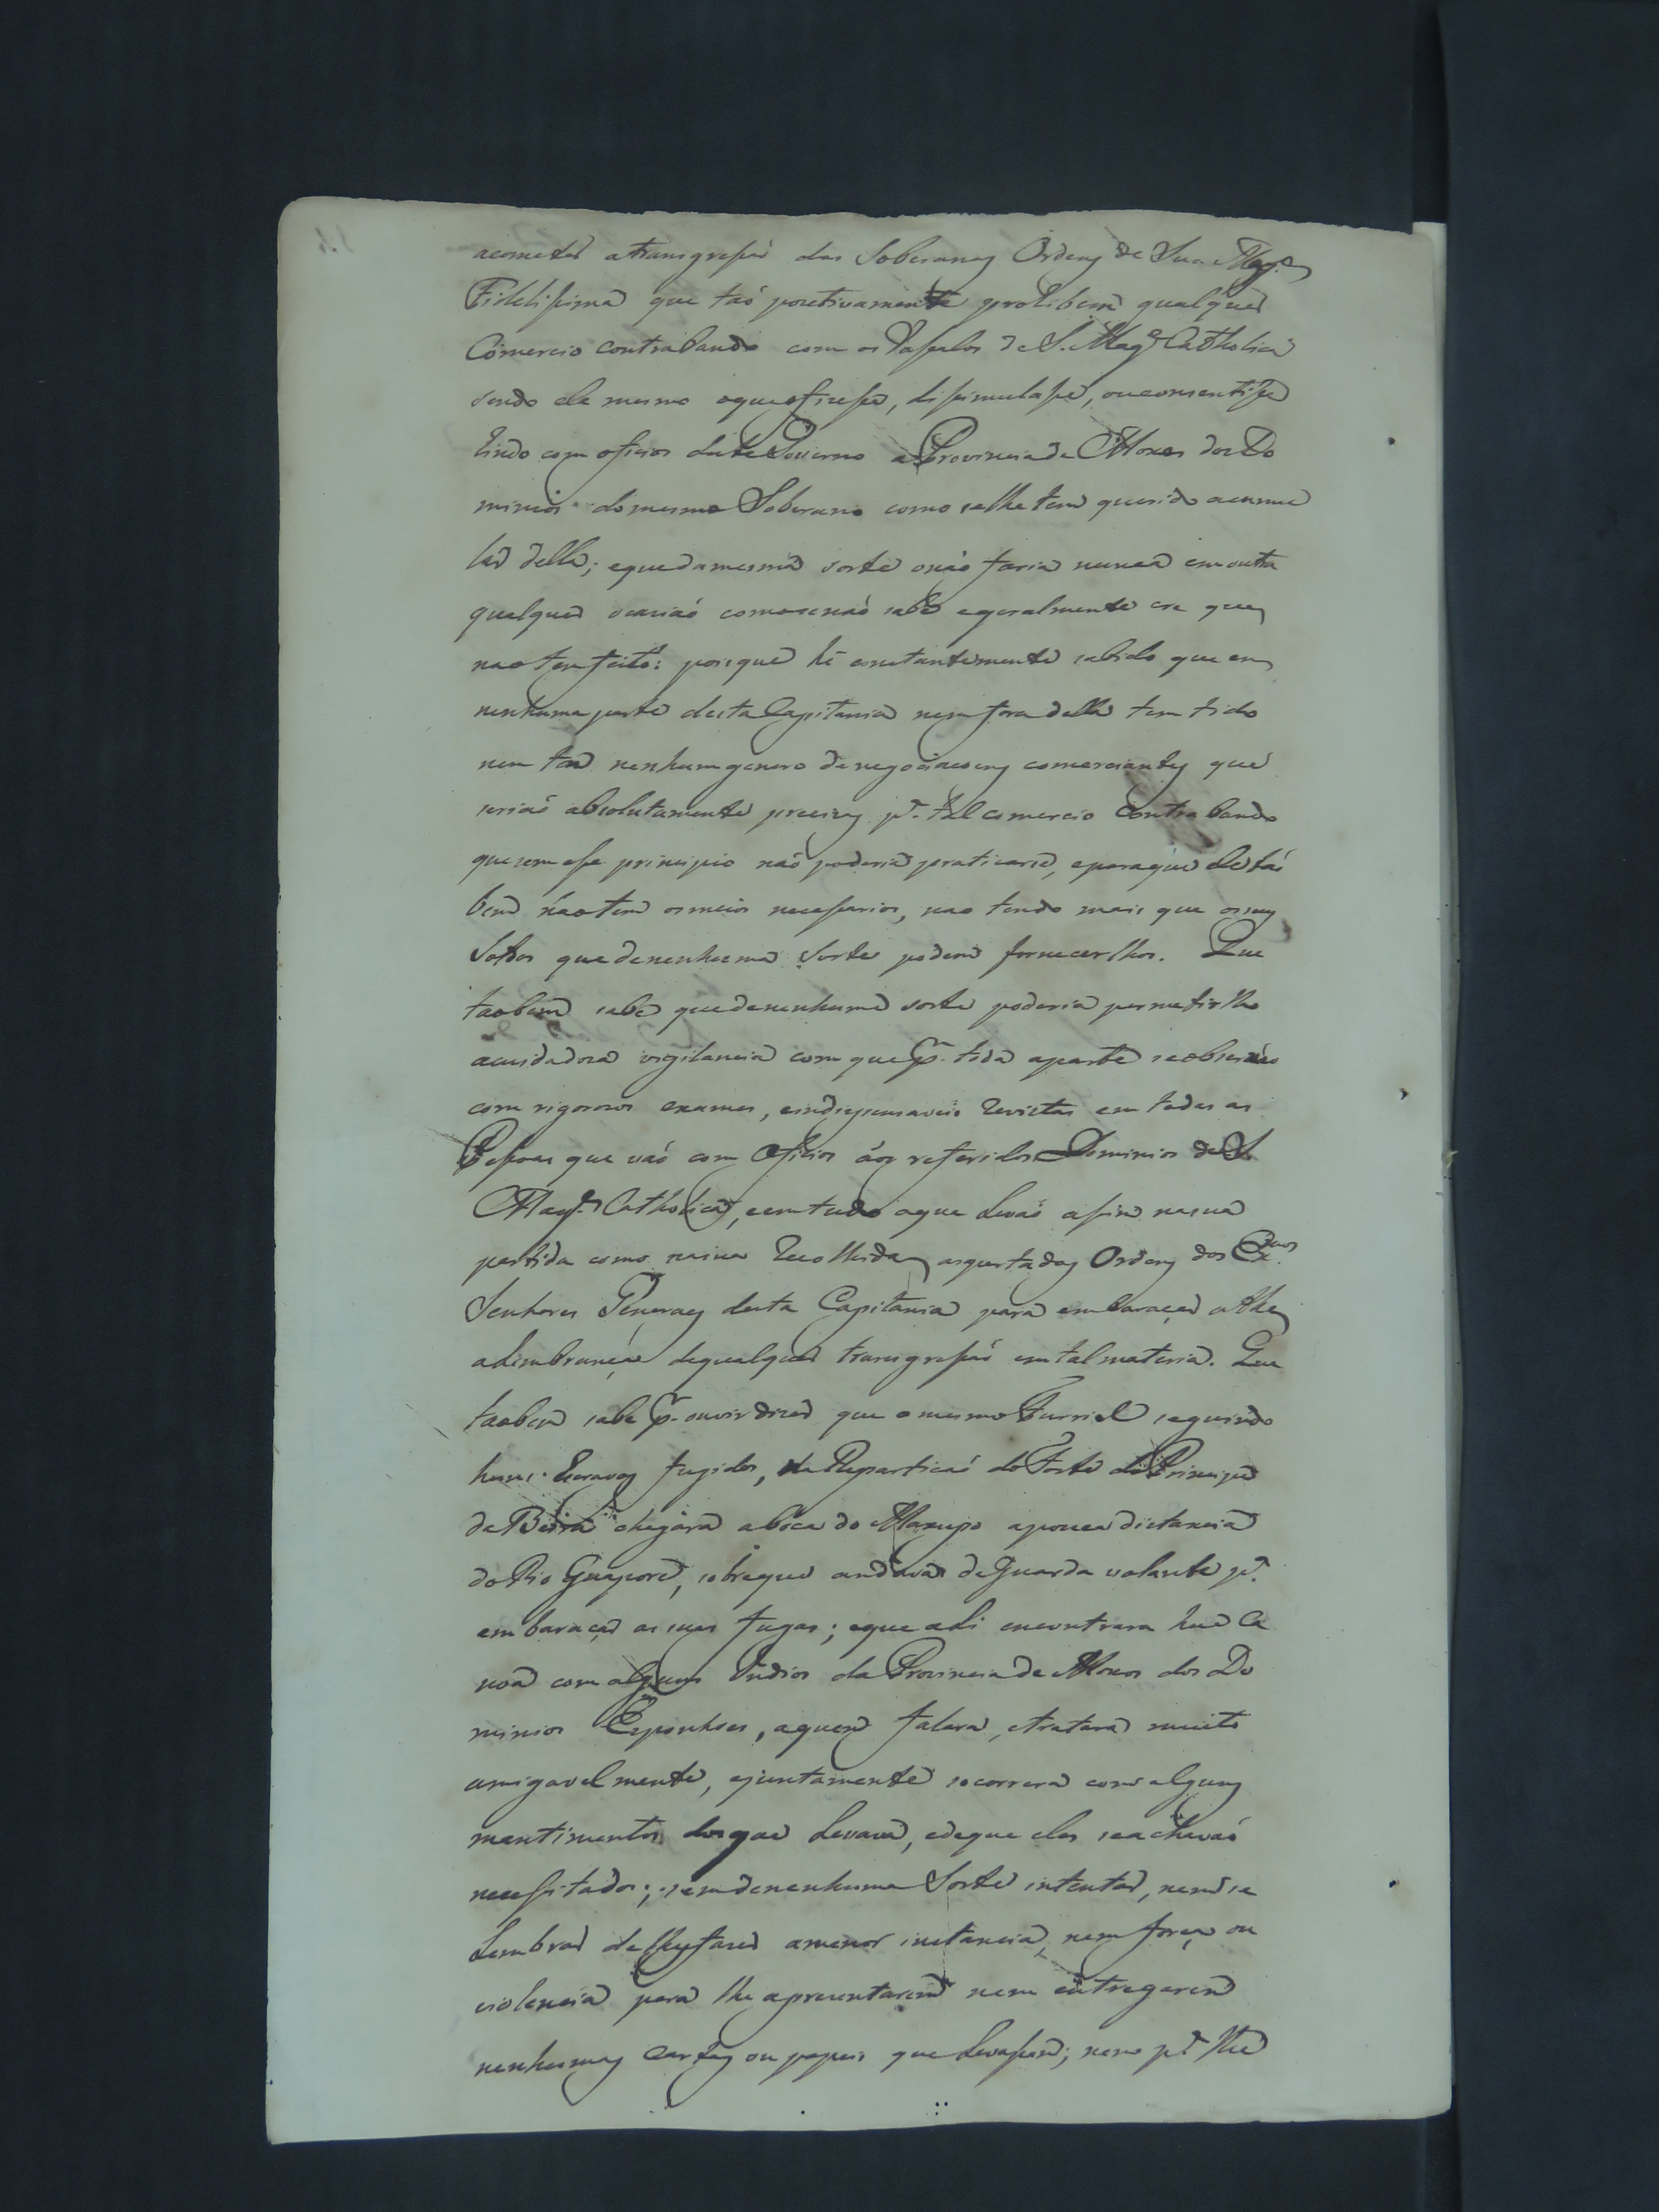 acometer a transgreção das Soberanas Ordens de Sua Mag.e
Fidelissima que taó pozitivamente prohibem qualquer
Comercio contrabando com os Vassalos de S. Mag.e Catholica
sendo ele mesmo o que o fizesse, dissimulasse, ou consentisse
hindo com oficios deste Governo a Provincia de Moxos dos Do
minios do mesmo Soberano como se lhe tem querido acumu
lar della; e que da mesma sorte o não faria nunca em outra
qualquer ocaziaó como se naó sabe e geralmente cre que
nao tem feito: porque hé constantemente sabido que em
nenhuma parte desta Capitania nem fora della tem tido
nem tem nenhum genero de negociaçoens comerciantes que
seriaó absolutamente precizas p.a tal comercio contrabando
que sem esse principio naó poderia praticarse, e para que ele taó
bem não tem os meios necessarios, nao tendo mais que os seus
Soldos que de nenhuma sorte podem fornecerlhos. Que
taobem sabe que de nenhuma sorte poderia permetirlho
a cuidadoza vigilancia com que p.r toda a parte se observaó
com rigorozos exames, e indispensaveis Revistas em todas as
Pessoas que vaó com Oficios áos referidos Dominios de S.
Mag.e Catholica, e em tudo o que levaó assim na sua
partida como na sua Recolhida, as justadas Ordens dos Ex.mos
Senhores Generaes desta Capitania para embaraçar athe
a lembrança de qualquer transgressaó em tal materia. Que
taobem sabe p.r ouvir dizer que o mesmo Furriel seguindo
huns Escravos fugidos, da Repartiçaó do Forte do Principe
da Beira chegára a boca do Mamupo a pouca distancia
do Rio Guaporé, sobre que andava de Guarda volante p.a
embaraçar as suas fugas; e que ali encontrara huã Ca
noa com alguns Indios da Provincia de Moxos dos Do
minios Esponhoes, a quem falara, e tratara muito
amigavelmente, e juntamente socorrera com alguns
mantimentos dos que levava, e de que eles se achavaó
necessitados; sem de nenhuma Sorte intentar, nem se
Lembrar de lhes fazer a menor instancia, nem força ou
violencia para lhe aprezentarem nem entregarem
nenhumas cartas ou papeis que levassem; nem p.a lhe